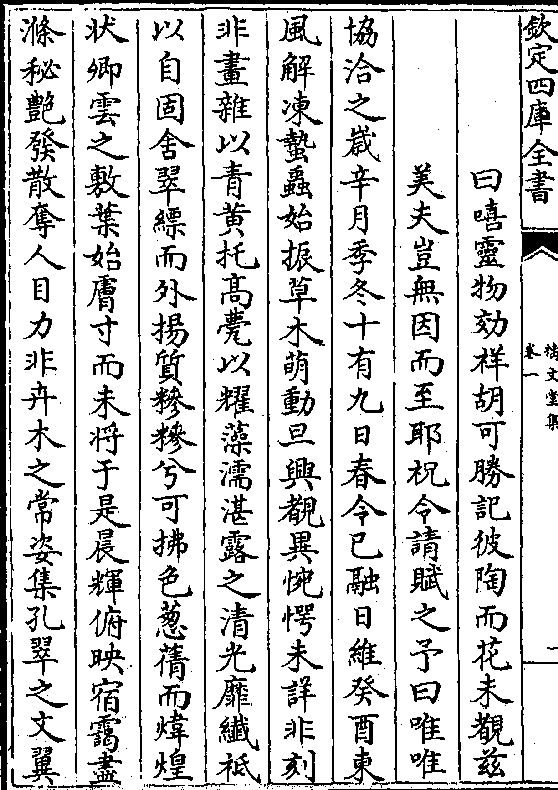 欽定四庫全書
卷一
曰嘻靈物效祥胡可勝記彼陶而花未觀兹
美夫豈無因而至耶祝令請賦之予曰唯唯
協洽之嵗辛月季冬十有九日春令已融日維癸酉東
風解凍蟄蟲始振草木萌動旦興觀異惋愕未詳非刻
非畫雜以青黄托高甍以耀藻濡湛露之清光靡纖袛
以自固舍翠縹而外揚質糝糝兮可拂色葱蒨而煒煌
状卿雲之敷葉始膚寸而未将于是晨輝俯映宿靄盡
滌秘艶發散奪人目力非卉木之常姿集孔翠之文翼